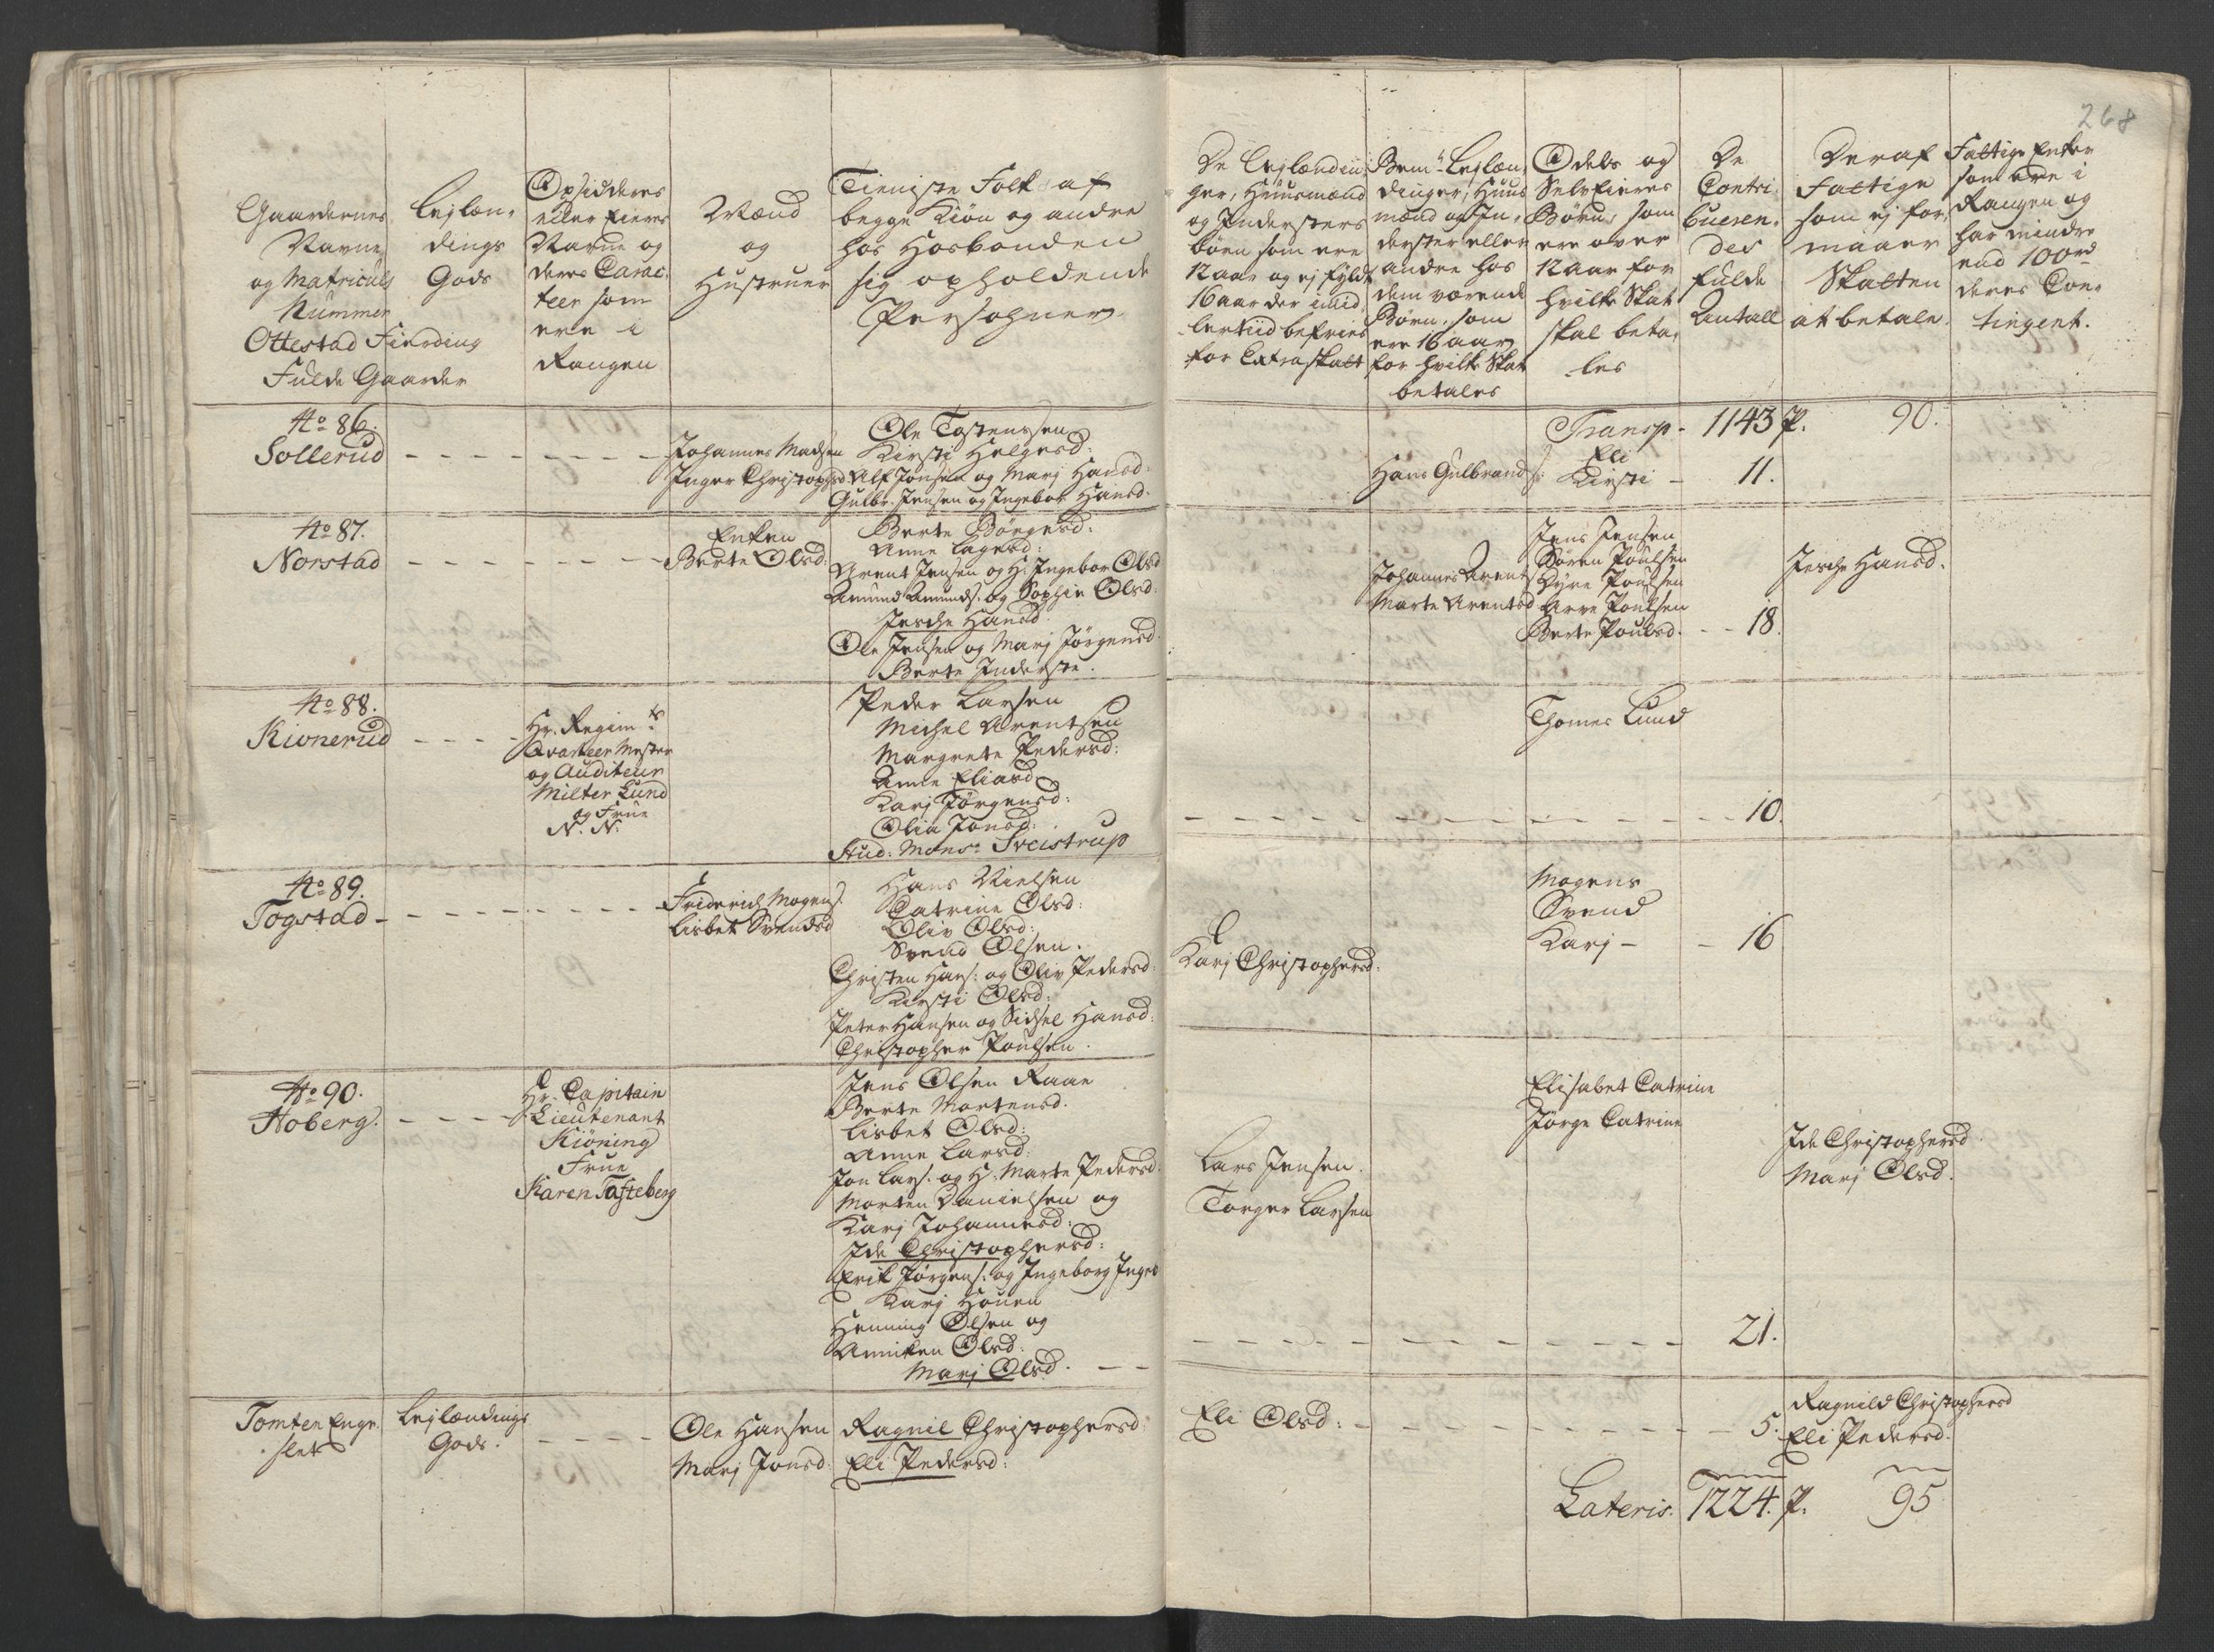 268
Gaardernes
Navne
og Matriculs
Nummer
Ottestad Fierding
Fulde Gaarder
Lejlæn-
dings
Gods
Opsidderes
eller Eieres
Navne og
deres Carac-
teer som
ere i
Rangen
Mænd
og
Hustruer
Tieniste Folk af
begge Kiøn og andre
hos Hosbonden
sig opholdende
Persohner
De Lejlændin-
ger, Huusmænd
og Indersters
børn som ere
12 aar og ej fyldt
16 aar der imid-
lertiid befries
for Extraskatt
Bemte Lejlæn-
dinger, Huus
mænd og In-
derster eller
andre hos
dem værende
Børn, som
ere 16 aar
for hvilke Skat
betales
Odels og
Selveieres
Børn, som
ere over
12 aar for
hvilke Skat
skal beta-
les
De
Contri-
bueren-
des
fulde
Antall
Deraf
Fattige
som ej for-
maaer
Skatten
at betale.
Fattige Enker
som ere i
Rangen og
har mindre
end 100 rd
deres Con-
tingent.
Transp - 1143 P. 90.
No 86.
Sollerud
Johannes Madsen
Inger Christophersd
Ole Tostenssen
Kirsti Helgesd:
Alf Jonsen og Marj Hansd:
Gulbr. Jensen og Ingebor Hansd.
Hans Gulbrands:
Eli
Kirsti - 11.
No 87.
Norstad
Enken
Berte Olsd:
Berte Børgesd:
Anne Lagesd:
Arent Jensen og H: Ingebor Olsd
Amund Amunds: og Sophie Olsd:
Jesche Hansd.
Ole Jensen og Marj Jørgensd.
Berte Inderste.
Johannes Arents
Marte Arentsd
Jens Jensen
Søren Poulsen
Dyre Poulsen
Arve Poulsen
Berte Poulsd. - - 18.
Jesche Hansd.
No 88.
Kionerud
Hr. Regimts
Qvarteer Mester
og Auditeur
Milter Lund
og Frue
N. N.
Peder Larsen
Michel Arentsen
Margrete Pedersd:
Anne Eliasd
Karj Jørgensd:
Olia Jonsd:
Stud: Monsr Sveistrup
Thomes Lund
10.
No 89.
Togstad
Friderich Mogens:
Lisbet Svendsd
Hans Nielsen
Catrine Olsd:
Oliv Olsd:
Svend Olsen.
Christen Hans: og Oliv Pedersd:
Kirsti Olsd:
Peter Hansen og Sidsel Hansd:
Christopher Poulsen.
Karj Christophersd:
Mogens
Svend
Karj - - 16
No 90.
Hoberg.
Hr. Capitain
Lieutenant
Kiöning
Frue
Karen Tafteberg
Jens Olsen Raae
Berte Mortensd.
Lisbet Olsd:
Anne Larsd:
Jon Lars: og H. Marte Pedersd.
Morten Danielsen og
Karj Johannesd:
Ide Christophersd:
Erik Jørgens: og Ingeborg Ingeb
Karj Houen
Henning Olsen og
Anniken Olsd:
Marj Olsd. - -
Lars Jensen.
Torger Larsen
Elisabet Catrine
Jørge Catrine
Ide Christophersd.
Marj Olsd.
21.
Tomten Enge-
slet
Lejlændings
Gods.
Ole Hansen
Marj Jonsd:
Ragnil Christophersd:
Eli Pedersd:
Eli Olsd: - 5.
Ragnild Christophersd
Eli Pedersd.
Lateris. 1224. P. 95